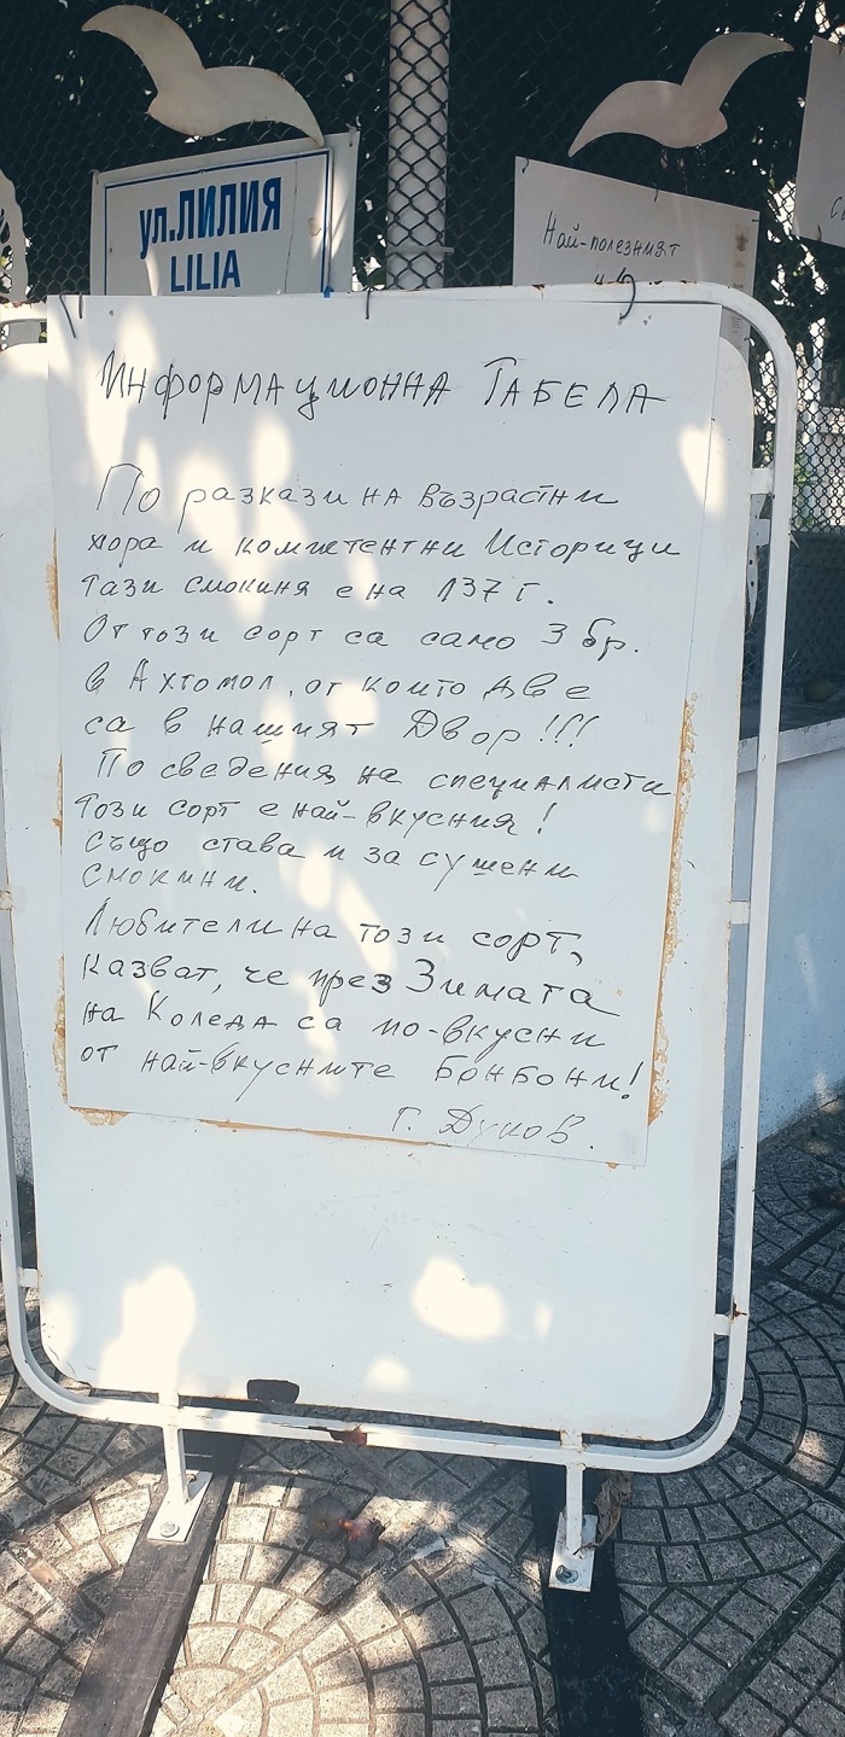 ул.ЛИЛИЯ
LILIA
Най-полезният
ИНФОРМАЦИОННА ТАБЕЛА
По разкази на възрастни
хора и компетентни Историци
тази смокиня е на 137 г.
От този сорт са само 3 бр.
в Ахтопол, от които две
са в нашият Двор!!!
По сведения на специалисти
този сорт е най-вкусния!
Също става и за сушени
Смокини.
Любители на този сорт,
казват, че през Зимата
на Коледа са по-вкусни
от най-вкусните бонбони!
Г. Дуков.